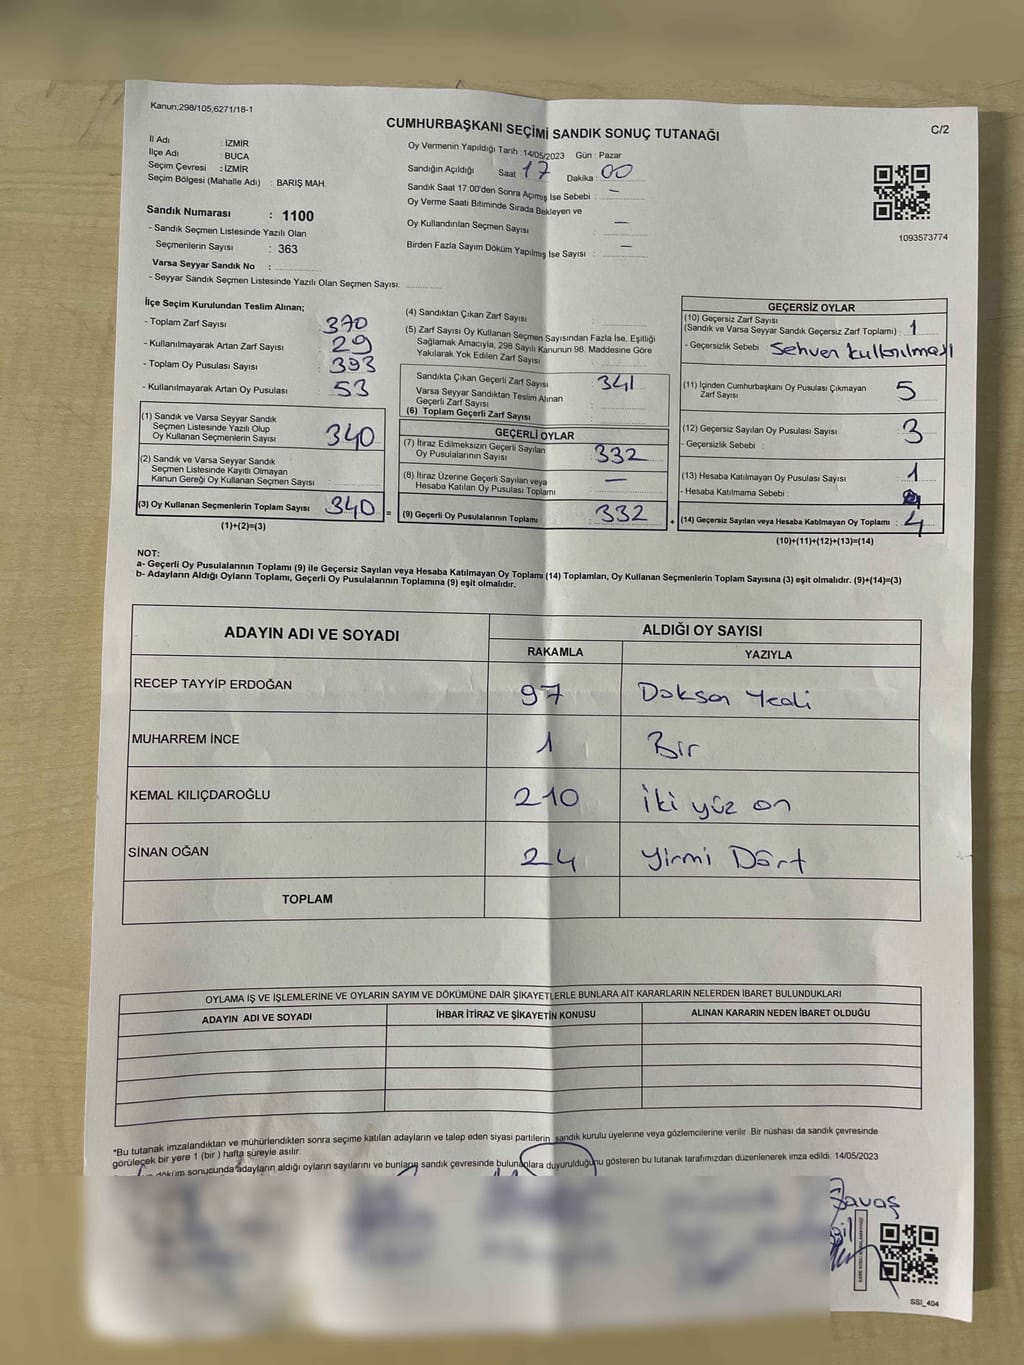 Kanun;298/105;6271/18-1
CUMHURBAŞKANI SEÇİMİ SANDIK SONUÇ TUTANAĞI
C/2
İl Adı : İZMİR
İlçe Adı : BUCA
Seçim Çevresi : İZMİR
Seçim Bölgesi (Mahalle Adı) : BARIŞ MAH.
Sandık Numarası : 1100
- Sandık Seçmen Listesinde Yazılı Olan
Seçmenlerin Sayısı : 363
Varsa Seyyar Sandık No :
- Seyyar Sandık Seçmen Listesinde Yazılı Olan Seçmen Sayısı:
Oy Vermenin Yapıldığı Tarih : 14/05/2023 Gün : Pazar
Sandığın Açıldığı Saat : 17 Dakika : 00
Sandık Saat 17.00'den Sonra Açımış İse Sebebi : —
Oy Verme Saati Bitiminde Sırada Bekleyen ve
Oy Kullandırılan Seçmen Sayısı : —
Birden Fazla Sayım Döküm Yapılmış İse Sayısı : —
1093573774
İlçe Seçim Kurulundan Teslim Alınan;
- Toplam Zarf Sayısı 370
- Kullanılmayarak Artan Zarf Sayısı 29
- Toplam Oy Pusulası Sayısı 393
- Kullanılmayarak Artan Oy Pusulası 53
(1) Sandık ve Varsa Seyyar Sandık
Seçmen Listesinde Yazılı Olup
Oy Kullanan Seçmenlerin Sayısı 340
(2) Sandık ve Varsa Seyyar Sandık
Seçmen Listesinde Kayıtlı Olmayan
Kanun Gereği Oy Kullanan Seçmen Sayısı :
(3) Oy Kullanan Seçmenlerin Toplam Sayısı 340
(1)+(2)=(3)
=
(4) Sandıktan Çıkan Zarf Sayısı
(5) Zarf Sayısı Oy Kullanan Seçmen Sayısından Fazla İse, Eşitliği
Sağlamak Amacıyla, 298 Sayılı Kanunun 98. Maddesine Göre
Yakılarak Yok Edilen Zarf Sayısı :
Sandıkta Çıkan Geçerli Zarf Sayısı 341
Varsa Seyyar Sandıktan Teslim Alınan
Geçerli Zarf Sayısı
(6) Toplam Geçerli Zarf Sayısı
GEÇERLİ OYLAR
(7) İtiraz Edilmeksizin Geçerli Sayılan
Oy Pusulalarının Sayısı 332
(8) İtiraz Üzerine Geçerli Sayılan veya
Hesaba Katılan Oy Pusulası Toplamı —
(9) Geçerli Oy Pusulalarının Toplamı : 332
+
GEÇERSİZ OYLAR
(10) Geçersiz Zarf Sayısı
(Sandık ve Varsa Seyyar Sandık Geçersiz Zarf Toplamı) : 1
- Geçersizlik Sebebi : Sehven kullanılması
(11) İçinden Cumhurbaşkanı Oy Pusulası Çıkmayan
Zarf Sayısı 5
(12) Geçersiz Sayılan Oy Pusulası Sayısı 3
- Geçersizlik Sebebi :
(13) Hesaba Katılmayan Oy Pusulası Sayısı : 1
- Hesaba Katılmama Sebebi :
(14) Geçersiz Sayılan veya Hesaba Katılmayan Oy Toplamı : 4
(10)+(11)+(12)+(13)=(14)
NOT:
a- Geçerli Oy Pusulalarının Toplamı (9) ile Geçersiz Sayılan veya Hesaba Katılmayan Oy Toplamı (14) Toplamları, Oy Kullanan Seçmenlerin Toplam Sayısına (3) eşit olmalıdır. (9)+(14)=(3)
b- Adayların Aldığı Oyların Toplamı, Geçerli Oy Pusulalarının Toplamına (9) eşit olmalıdır.
ADAYIN ADI VE SOYADI
ALDIĞI OY SAYISI
RAKAMLA YAZIYLA
RECEP TAYYİP ERDOĞAN 97 Doksan Yedi
MUHARREM İNCE 1 Bir
KEMAL KILIÇDAROĞLU 210 İki yüz on
SİNAN OĞAN 24 Yirmi Dört
TOPLAM
OYLAMA İŞ VE İŞLEMLERİNE VE OYLARIN SAYIM VE DÖKÜMÜNE DAİR ŞİKAYETLERLE BUNLARA AİT KARARLARIN NELERDEN İBARET BULUNDUKLARI
ADAYIN ADI VE SOYADI İHBAR İTİRAZ VE ŞİKAYETİN KONUSU ALINAN KARARIN NEDEN İBARET OLDUĞU
*Bu tutanak imzalandıktan ve mühürlendikten sonra seçime katılan adayların ve talep eden siyasi partilerin sandık kurulu üyelerine veya gözlemcilerine verilir .Bir nüshası da sandık çevresinde
görülecek bir yere 1 (bir ) hafta süreyle asılır.
döküm sonucunda adayların aldığı oyların sayılarını ve bunların sandık çevresinde bulunanlara duyurulduğunu gösteren bu tutanak tarafımızdan düzenlenerek imza edildi. 14/05/2023
Savaş
SSI_404